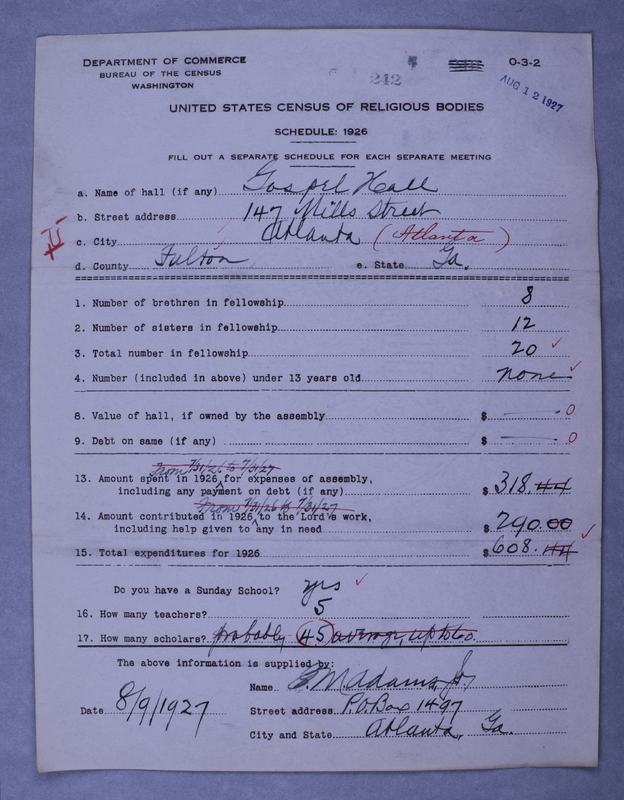 DEPARTMENT OF COMMERCE
BUREAU OF THE CENSUS
WASHINGTON
242
O-3-2
AUG 12 1927
UNITED STATES CENSUS OF RELIGIOUS BODIES
SCHEDULE: 1926
FILL OUT A SEPARATE SCHEDULE FOR EACH SEPARATE MEETING
a. Name of hall (if any) Gospel Hall
b. Street address 147 Mills Street
c. City Atlanta (Atlanta)
d. County Fulton e. State Ga.
1. Number of brethren in fellowship 8
2. Number of sisters in fellowship 12
3. Total number in fellowship 20 ✓
4. Number (included in above) under 13 years old none ✓
8. Value of hall, if owned by the assembly $ 0
9. Debt on same (if any) $ 0
From 7/31/26 to 7/31/27
13. Amount spent in 1926 for expenses of assembly,
including any payment on debt (if any) $ 318.44
From 7/31/26 to 7/31/27
14. Amount contributed in 1926 to the Lord's work,
including help given to any in need $ 290.00
15. Total expenditures for 1926 $ 608.44 ✓
Do you have a Sunday School? yes ✓
16. How many teachers? 5
17. How many scholars? probably 45 average, up to 60
The above information is supplied by:
Name Adams, Jr
Date 8/9/1927 Street address P.O. Box 1497
City and State Atlanta, Ga.